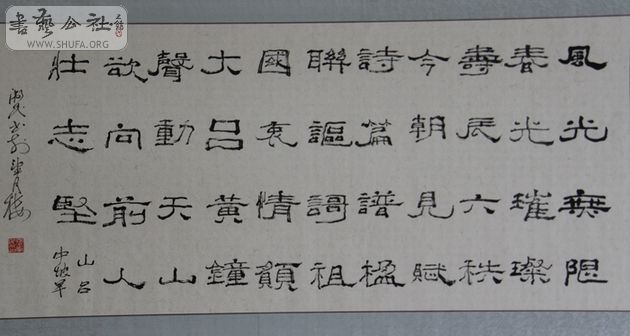 書藝公社
WWW.SHUFA.ORG
風光無限
春光璀璨
壽辰六秩
今朝見賦
詩篇譜楹
聯謳謌祖
國衷情
大呂黃鐘
聲動天山
欲向前人
壯志堅
山呂